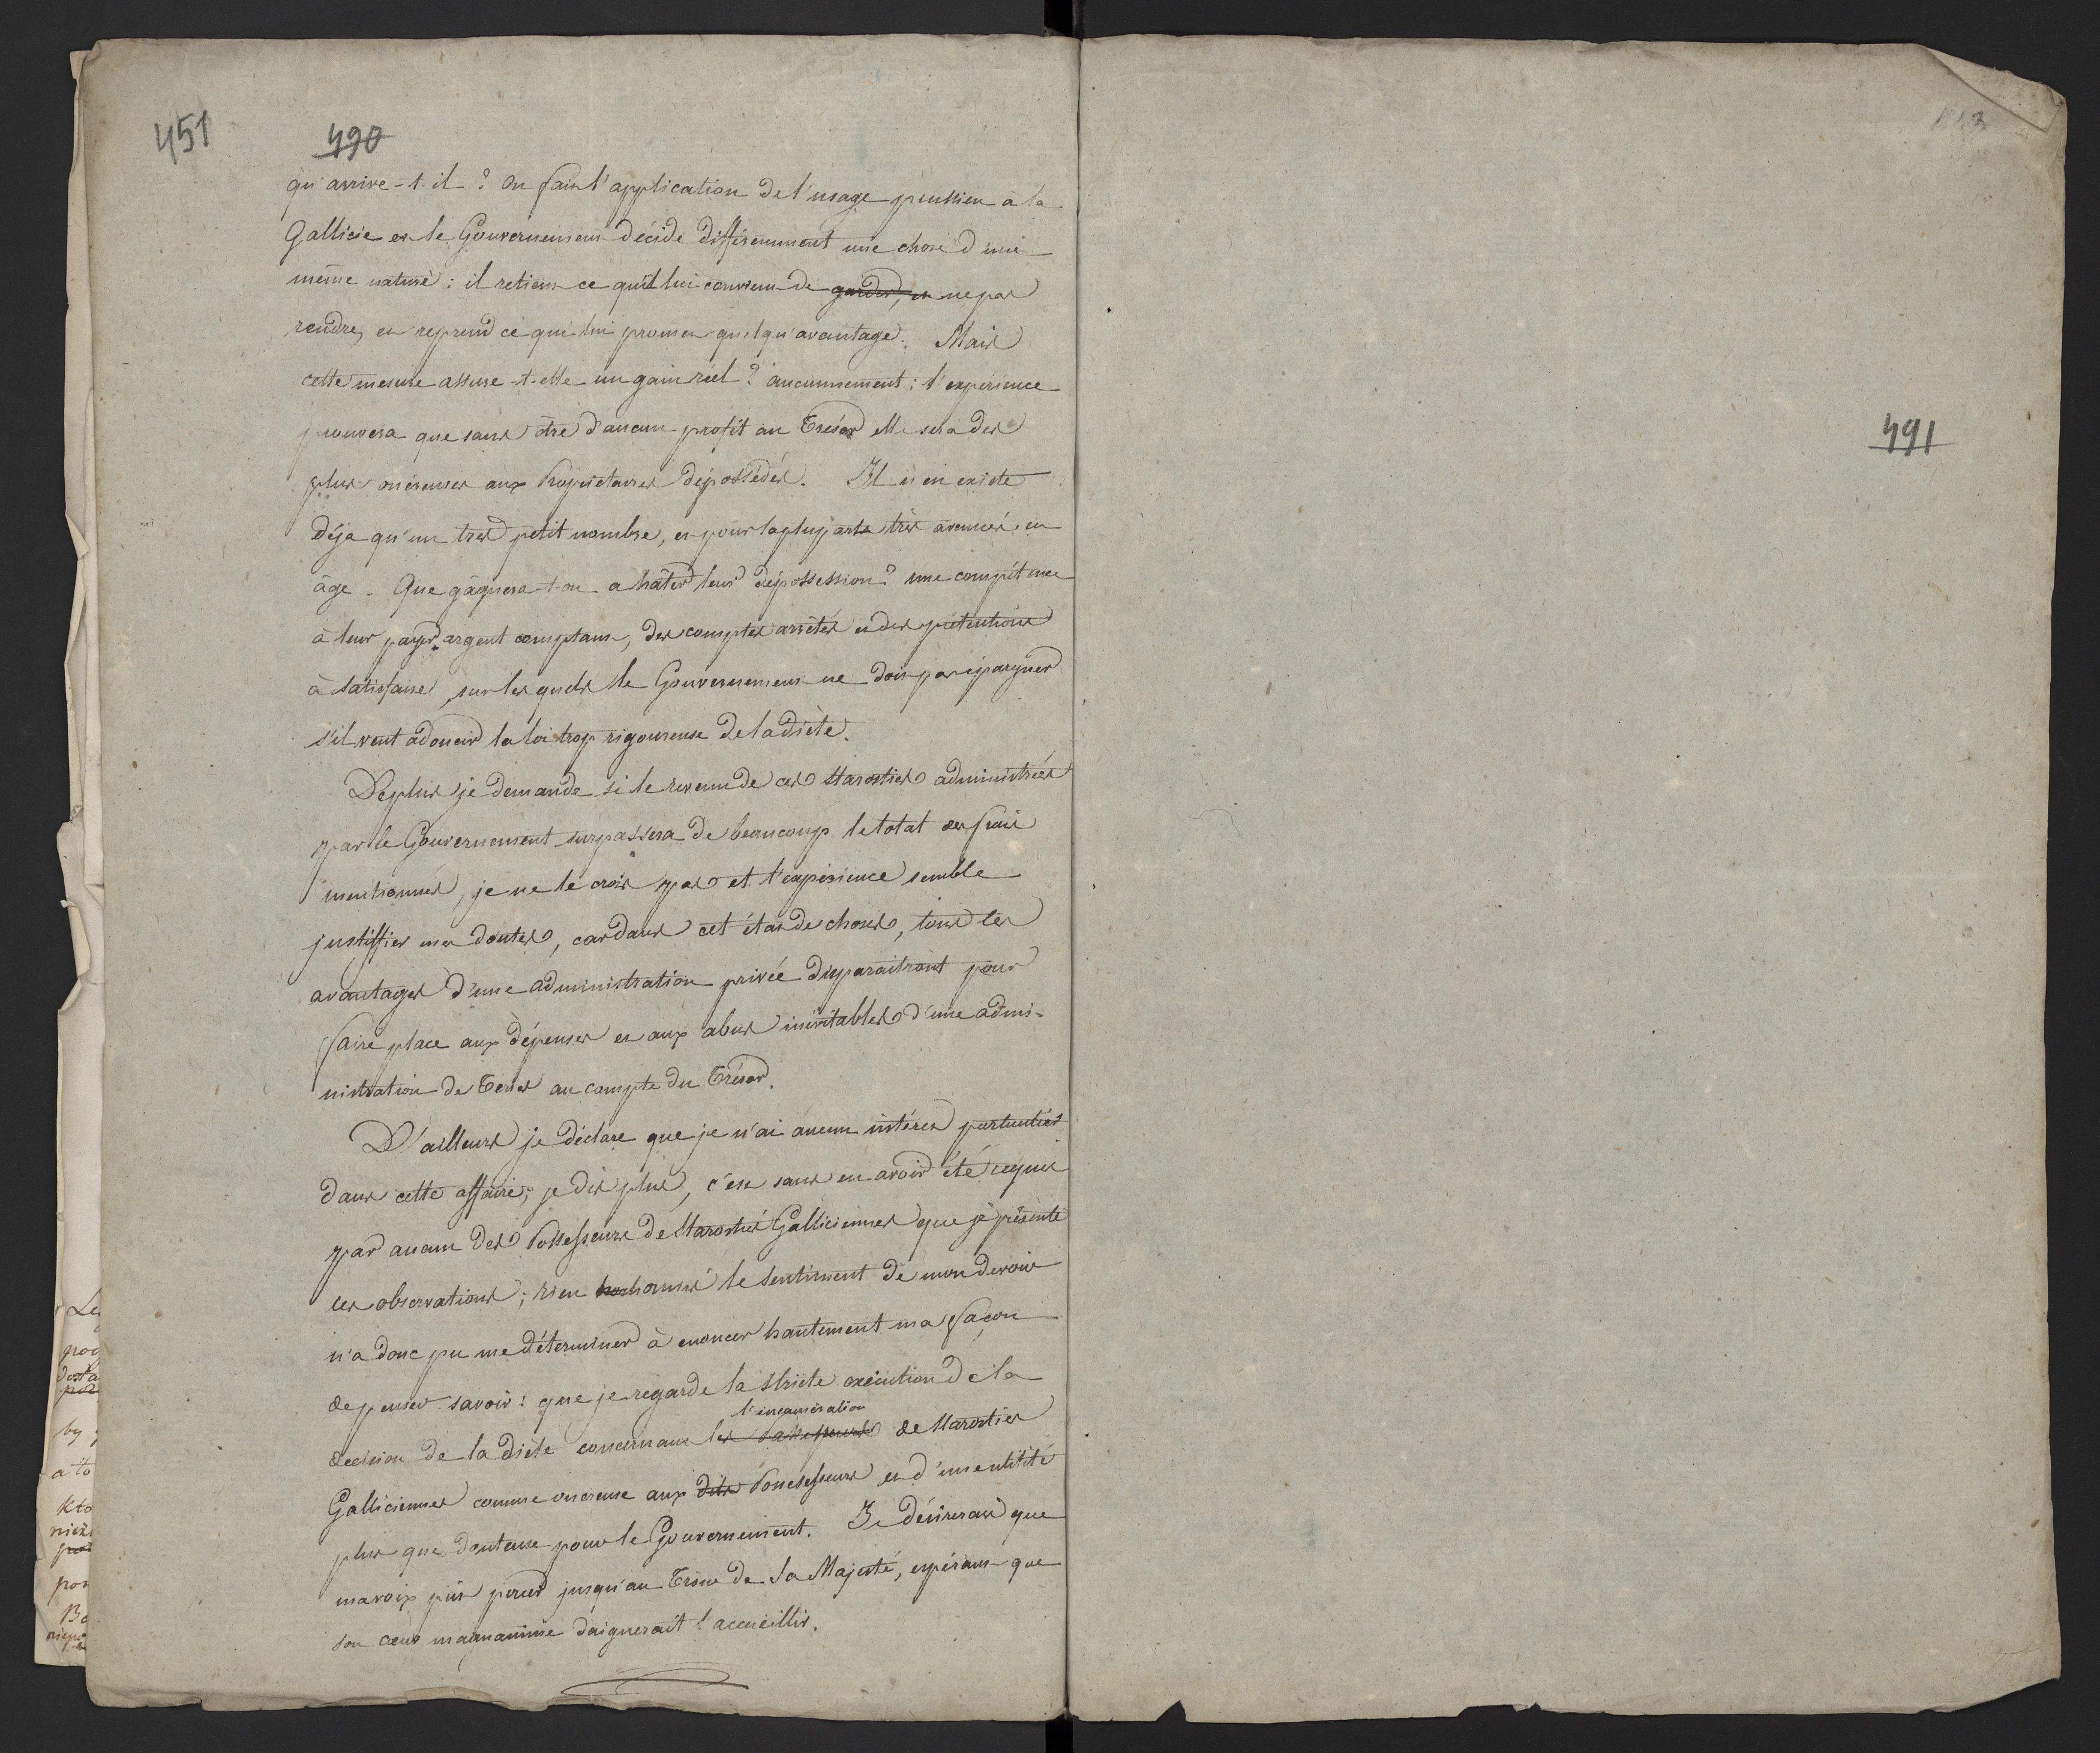 451
490
qu'arrive-t-il? On fait l'application de l'usage prussien à la
Gallicie et le Gouvernement décide différemment une chose d'une
même nature: il retient ce qu'il lui convient de garder, et ne pas
rendre, et reprend ce qui lui promet quelqu'avantage. Mais
cette mesure assure-t-elle un gain réel? aucunnement: l'expérience
prouvera que sans être d'aucun profit au Trésor elle sera des
plus onéreuses aux Propriétaires dépossédés. Il n'en existe
déja qu'un très petit nombre, et pour la plupart très avancés en
âge. Que gâgnera-t-on a hâter leur dépossession? une compétence
à leur payer argent comptant, des comptes arrêtés et des prétentions
à satisfaire, sur les quels le Gouvernement ne doit pas épargner
s'il veut adoucir la loi trop rigoureuse de la diète.
De plus je demande si le revenu de ces Starosties administrées
par le Gouvernement surpassera de beaucoup le total des frais
mentionnés, je ne le crois pas et l'expérience semble
justiffier mes doutes, car dans cet état de choses, tous les
avantages d'une administration privée disparaitront pour
faire place aux dépenses et aux abus inévitables d'une admi-
nistration de Terres au compte du Trésor.
D'ailleurs je déclare que je n'ai aucun intérêt
dans cette affaire; je dis plus, c'est sans en avoir été requis
par aucun des Possesseurs de Starosties Galliciennes que je présente
ces observations; rien hormis le sentiment de mon devoir
n'a donc pu me déterminer à enoncer hautement ma façon
de penser savoir: que je regarde la stricte exécution de la
l'incamération
decision de la diète concernant les de Starosties
Galliciennes comme onereuse aux dits Possesseurs et d'une utilité
plus que douteuse pour le Gouvernement. Je désirerais que
ma voix put percer jusqu'au Trône de Sa Majesté, espérant que
son cœur magnanime daignerait l'accueillir.
491